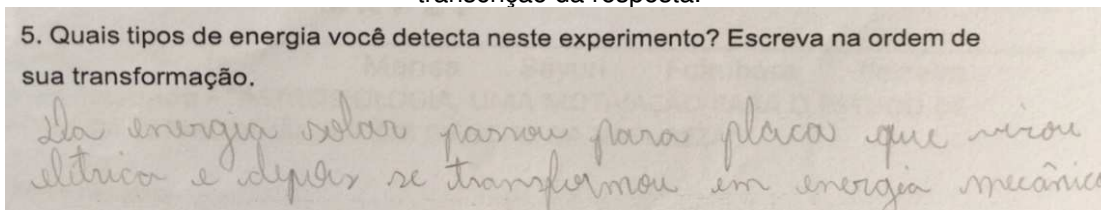 transcrição da resposta.
5. Quais tipos de energia você detecta neste experimento? Escreva na ordem de
sua transformação.
Da energia solar passou para placa que virou
elétrica e depois se transformou em energia mecânica